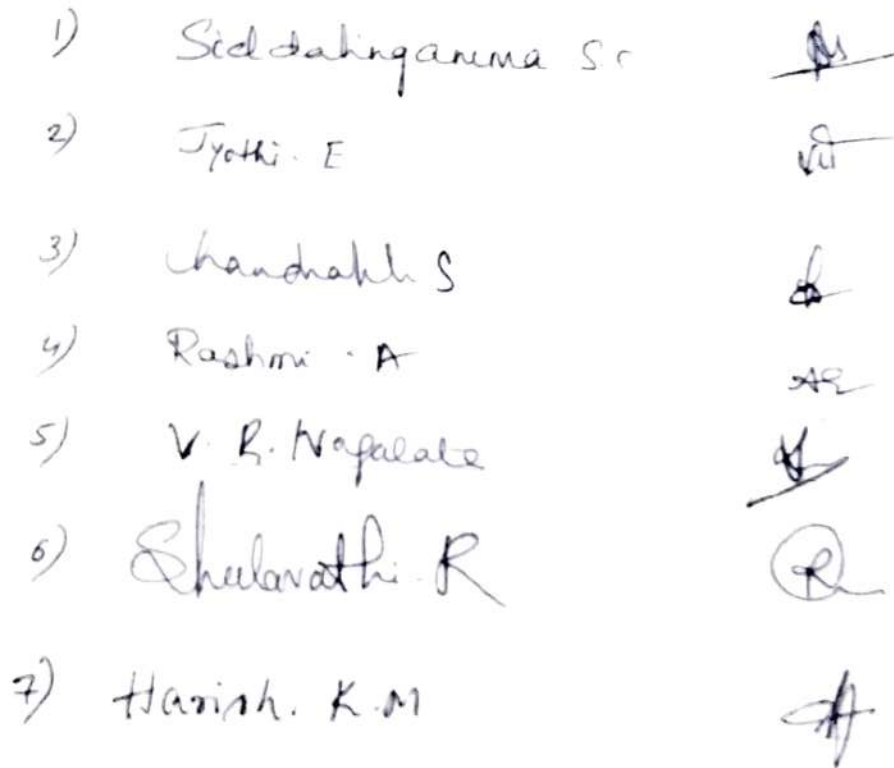 1) Siddalinganma S.
2) Jyothi. E
3) S
4) Rashmi. A
5) V. R. Nagalata
6) Sheelavathi. R
7) Harish. K.M